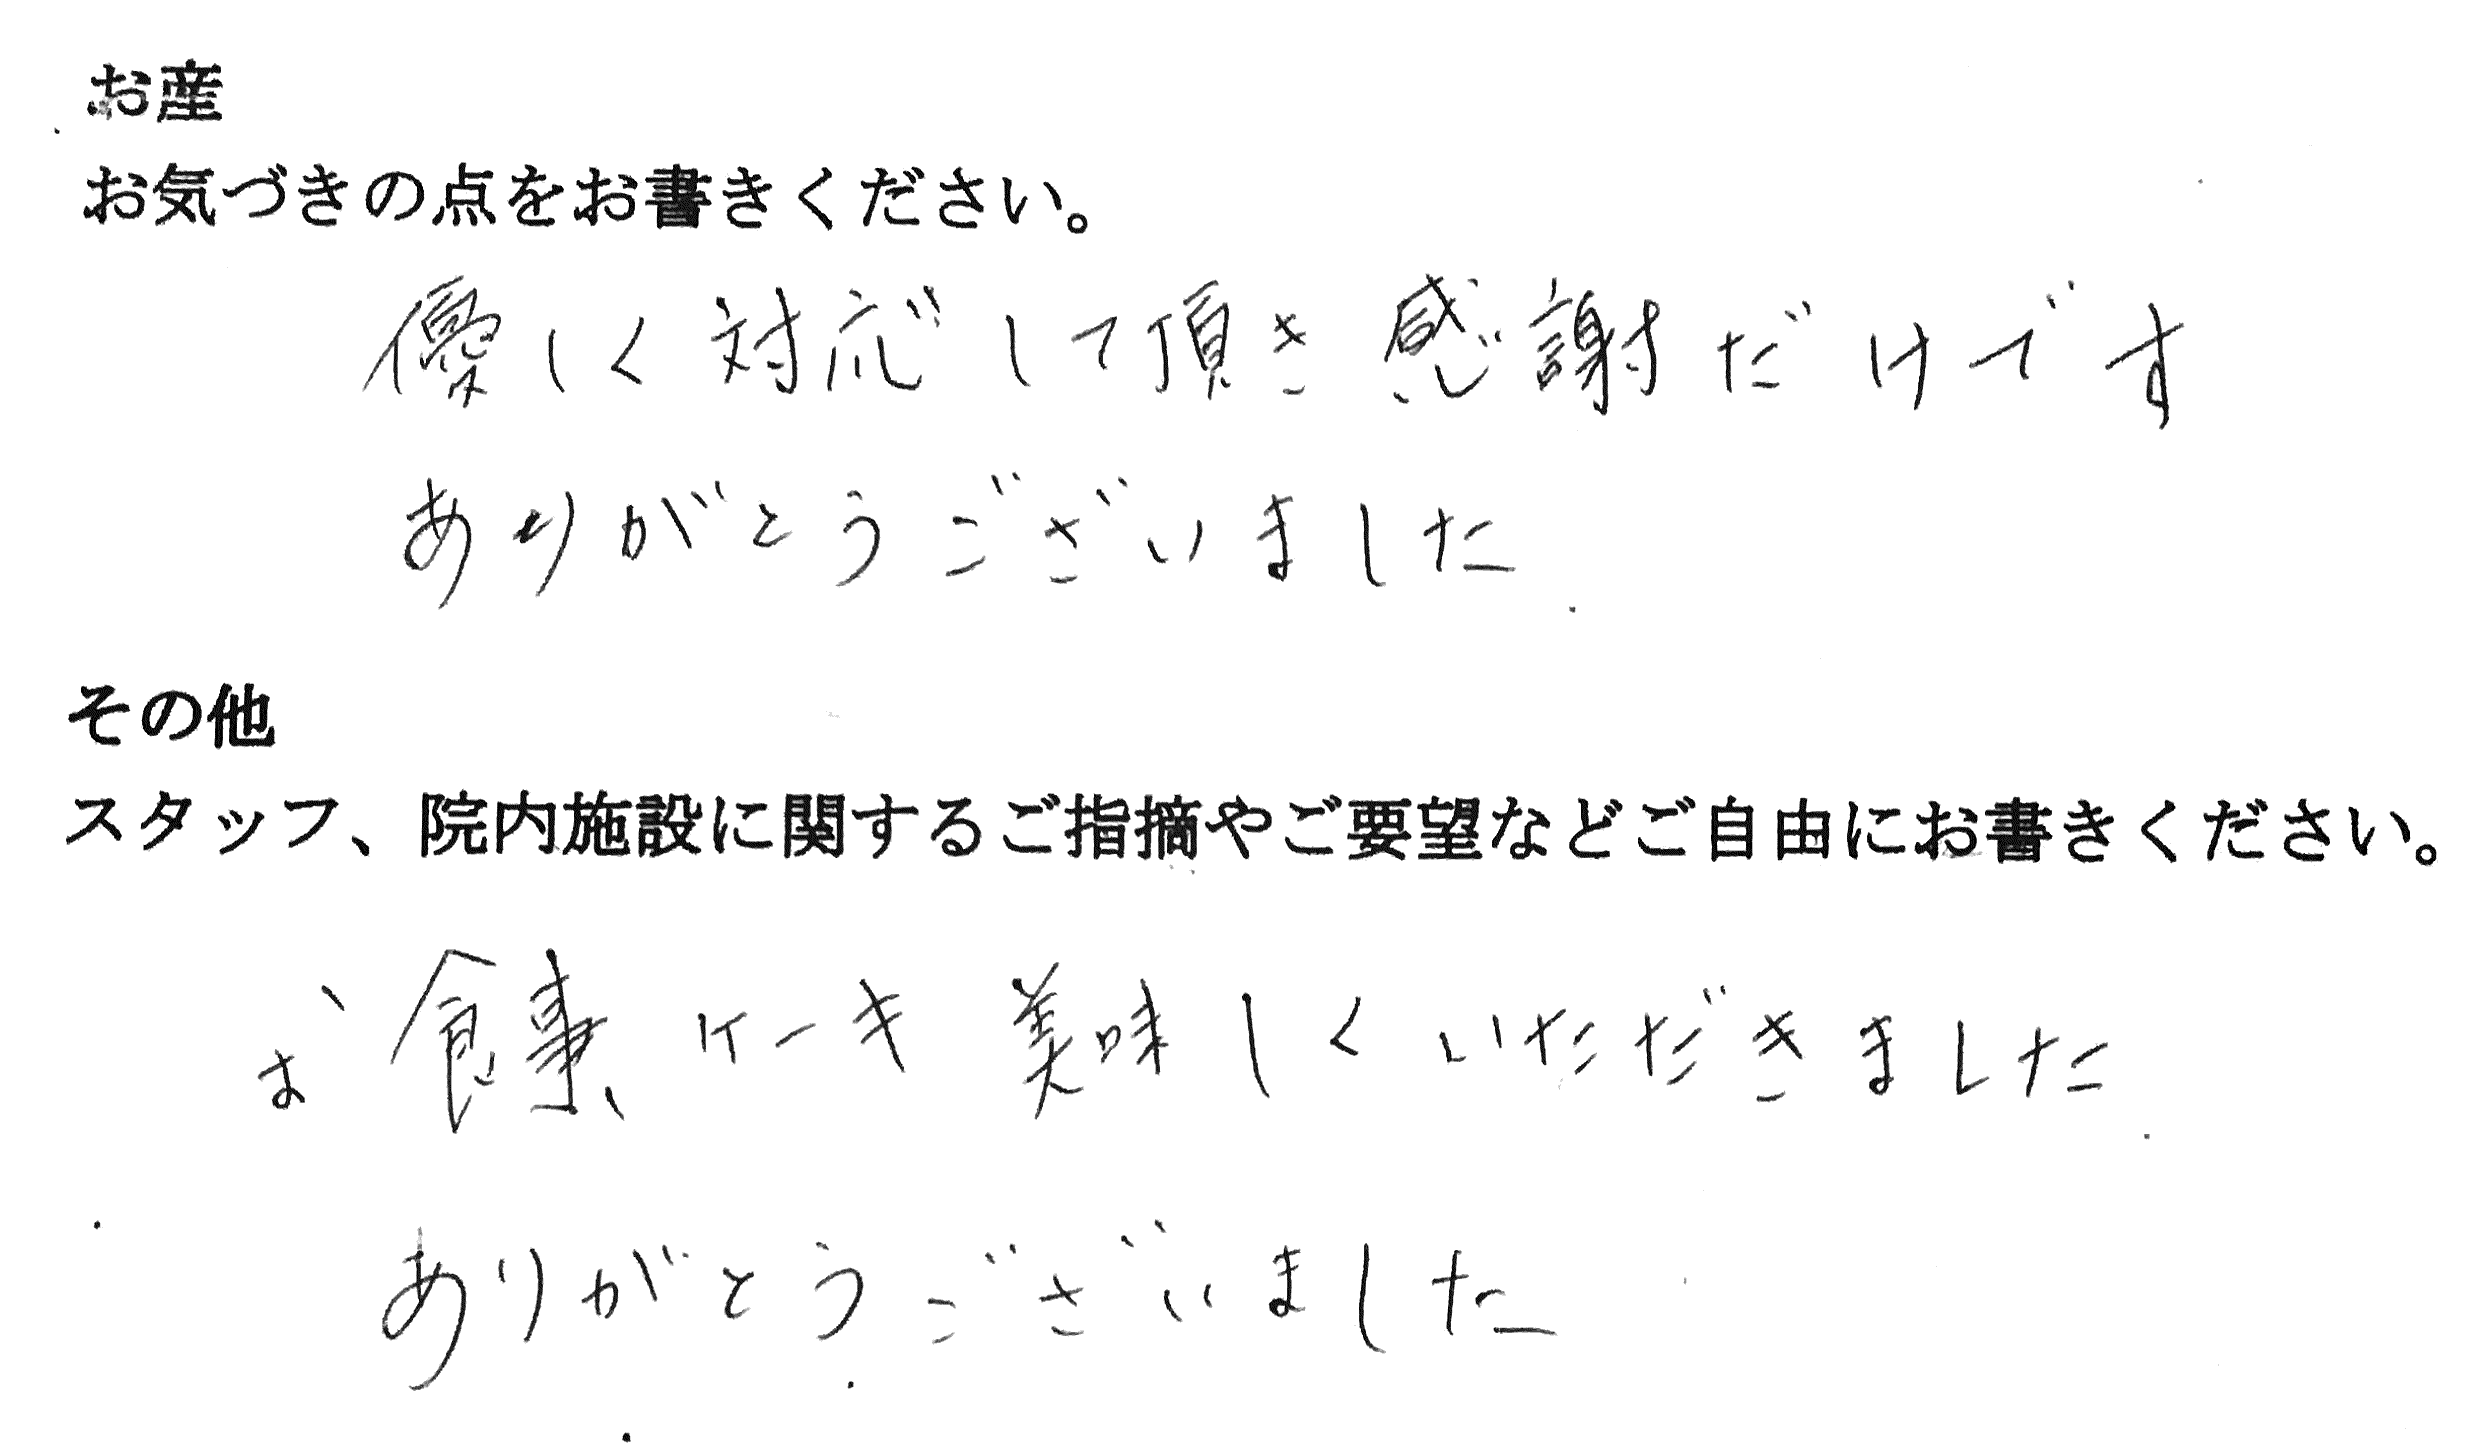 お産
お気づきの点をお書きください。
優しく対応して頂き感謝だけです
ありがとうございました
その他
スタッフ、院内施設に関するご指摘やご要望などご自由にお書きください。
お食事、ケーキ美味しくいただきました
ありがとうございました